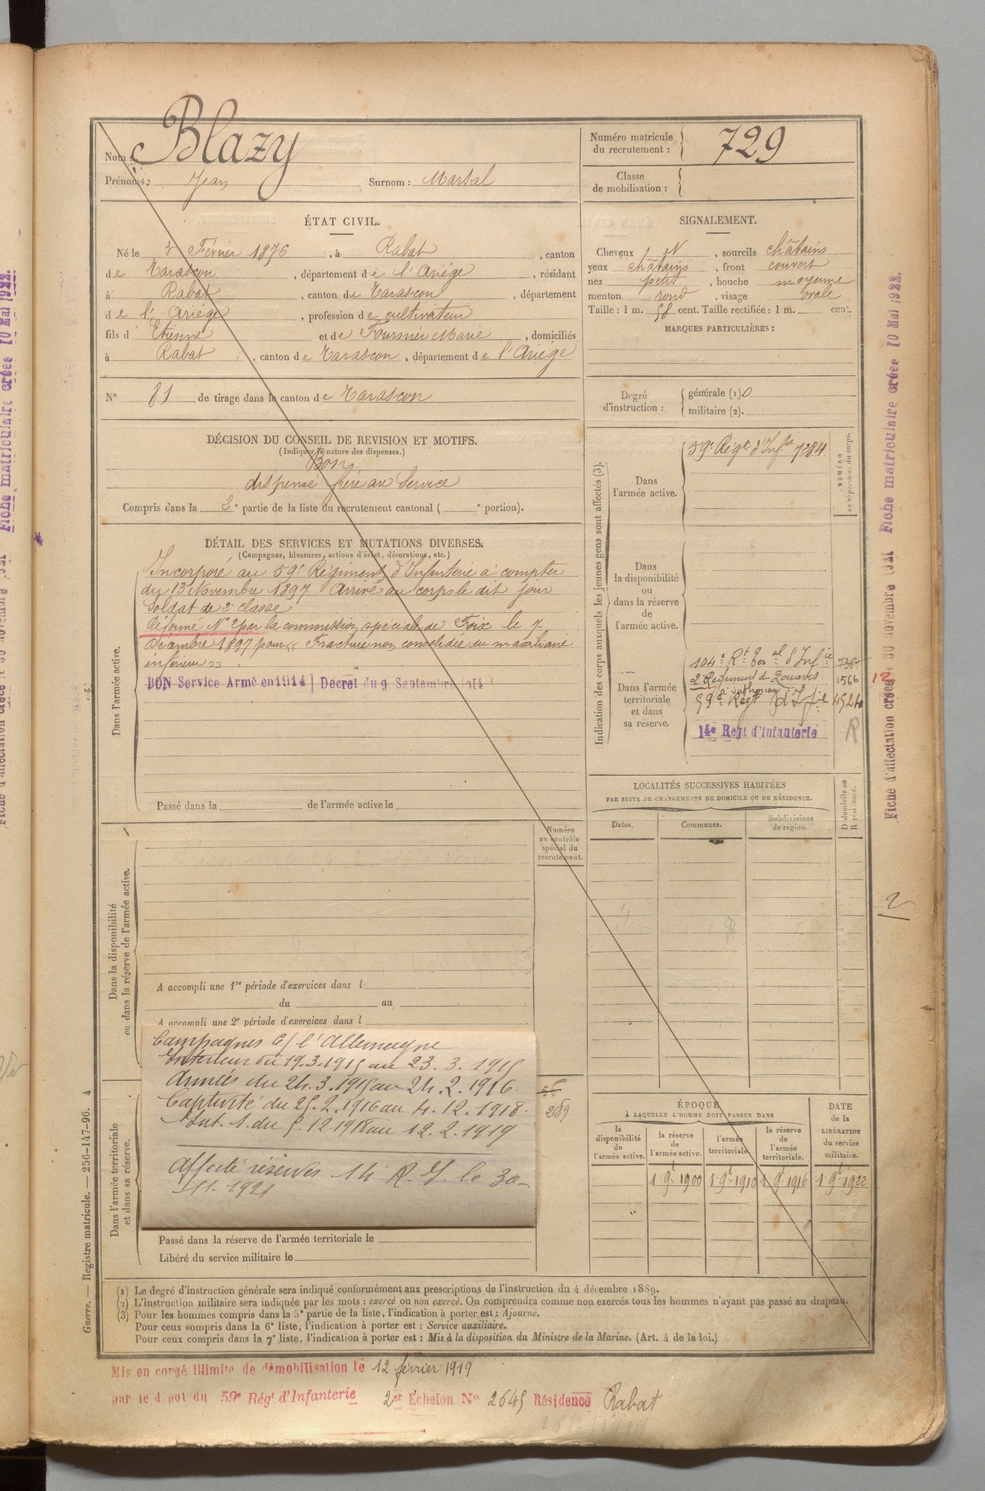 Nom : Blazy
Prénoms : Jean Surnom : Marsal
Numéro matricule du recrutement : 729
Classe de mobilisation :
ÉTAT CIVIL.
Né le 3 Février 1876, à Rabat, canton
de Tarascon, département de l'Ariége, résidant
à Rabat, canton de Tarascon, département
de l'Ariége, profession de cultivateur
fils d' Etienne et de Fournié Marie, domiciliés
à Rabat, canton de Tarascon, département de l'Ariége
N° 81 de tirage dans le canton de Tarascon
SIGNALEMENT.
Cheveux N, sourcils châtains
yeux châtains, front couvert
nez petit, bouche moyenne
menton rond, visage ovale
Taille : 1 m. 58 cent. Taille rectifiée : 1 m. cent.
MARQUES PARTICULIÈRES :
Degré d'instruction :
générale (1) 0
militaire (2).
DÉCISION DU CONSEIL DE REVISION ET MOTIFS.
(Indiquer la nature des dispenses.)
Bon
dispensé frère au Service
Compris dans la 2e partie de la liste du recrutement cantonal ( e portion).
DÉTAIL DES SERVICES ET MUTATIONS DIVERSES.
(Campagnes, blessures, actions d'éclat, décorations, etc.)
Dans l'armée active.
Incorporé au 59e Régiment d'Infanterie à compter
du 13 Novembre 1897 Arrivé au corps le dit jour
Soldat de 2e classe
Réformé N° 2 par la commission spéciale de Foix le 7
Décembre 1897 pour « Fracture non consolidée du maxillaire
inférieur ».
BON Service Armé en 1914 | Décret du 9 Septembre 1914
Passé dans la de l'armée active le
Indication des corps auxquels les jeunes gens sont affectés (3).
NUMÉRO au répertoire du corps.
Dans l'armée active.
59e Régt d'Infie 7284
Dans la disponibilité ou dans la réserve de l'armée active.
Dans l'armée territoriale et dans sa réserve.
104e Rt Ter al d'Infie
2e Régiment de Zouaves 1566
59e Régt d'Infie 4524
14e Régt d'Infanterie R
LOCALITÉS SUCCESSIVES HABITÉES
PAR SUITE DE CHANGEMENTS DE DOMICILE OU DE RÉSIDENCE.
Dates. Communes. Subdivisions de région. D domicile ou R résidence.
Numéro au contrôle spécial du recrutement.
Dans la disponibilité ou dans la réserve de l'armée active.
A accompli une 1re période d'exercices dans l
du au
A accompli une 2e période d'exercices dans l
Campagnes C/ l'Allemagne
Intérieur du 19.3.1915 au 23.3.1915
Armées du 24.3.1915 au 24.2.1916
Captivité du 25.2.1916 au 4.12.1918
Int. 1. du 5.12.1918 au 12.2.1919
Affecté réserves 14 R. I. le 30-
11.1921
289
Dans l'armée territoriale et dans sa réserve.
Passé dans la réserve de l'armée territoriale le
Libéré du service militaire le
ÉPOQUE
À LAQUELLE L'HOMME DOIT PASSER DANS
la disponibilité de l'armée active.
la réserve de l'armée active.
l'armée territoriale.
la réserve de l'armée territoriale.
DATE de la LIBÉRATION du service militaire.
1 9 1900 1 9 1910 1 9 1916 1 9 1922
(1) Le degré d'instruction générale sera indiqué conformément aux prescriptions de l'instruction du 4 décembre 1889.
(2) L'instruction militaire sera indiquée par les mots : exercé ou non exercé. On comprendra comme non exercés tous les hommes n'ayant pas passé au drapeau.
(3) Pour les hommes compris dans la 5e partie de la liste, l'indication à porter est : Ajourné.
Pour ceux compris dans la 6e liste, l'indication à porter est : Service auxiliaire.
Pour ceux compris dans la 7e liste, l'indication à porter est : Mis à la disposition du Ministre de la Marine. (Art. 4 de la loi.)
Mis en congé illimité de démobilisation le 12 février 1919
par le dépôt du 59e Régt d'Infanterie 2e Echelon N° 2645 Résidence Rabat
Guerre. — Registre matricule. — 256-147-96. 4
Fiche d'affectation créée 30 novembre 1921 Fiche matriculaire créée 10 Mai 1922.
2